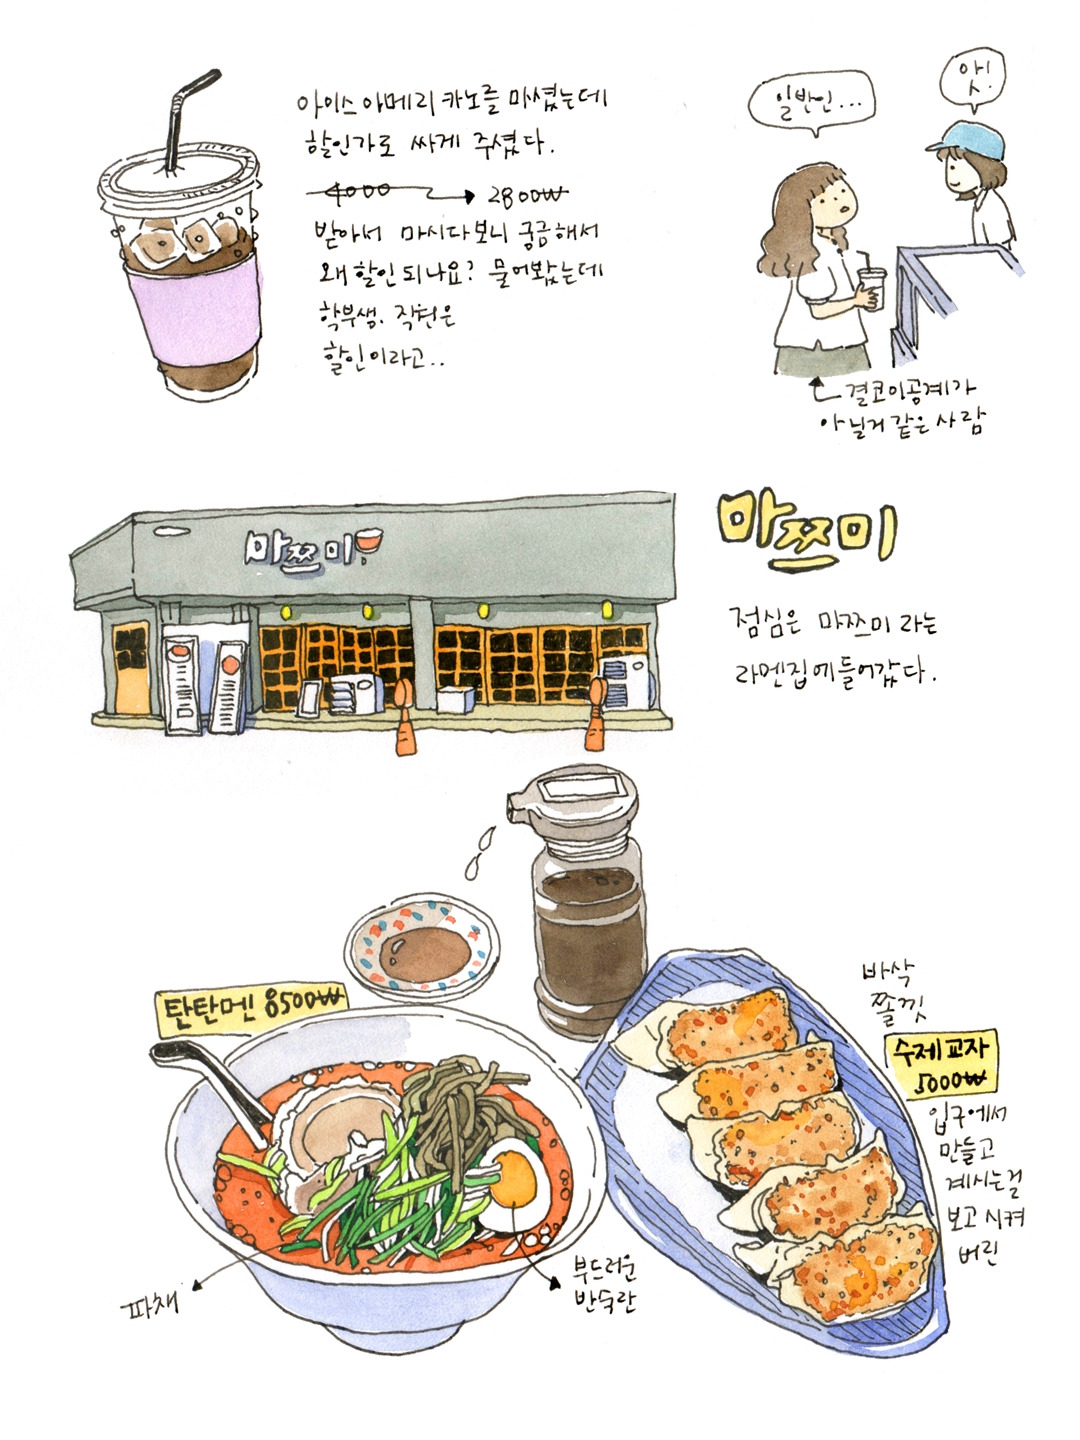 아이스 아메리카노를 마셨는데
할인가로 싸게 주셨다.
4000 → 2800₩
받아서 마시다보니 궁금해서
왜 할인되나요? 물어봤는데
학부생. 직원은
할인이라고..
일반인...
앗!
결코 이공계가
아닐거 같은 사람
마쯔미
마쯔미
점심은 마쯔미 라는
라멘집에 들어갔다.
탄탄멘 8500₩
파채
부드러운
반숙란
바삭
쫄깃
수제교자
5000₩
입구에서
만들고
계시는걸
보고 시켜
버린